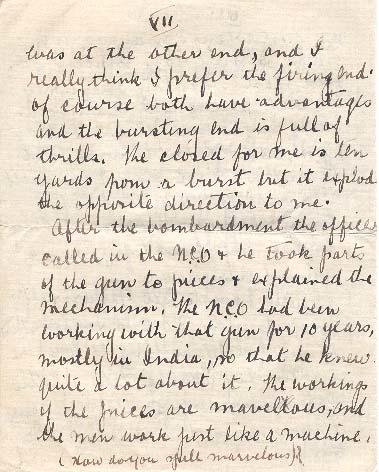 VII
was at the other end, and I
really think I prefer the firing end.
of course both have advantages
and the bursting end is full of
thrills. The closed for me is ten
yards from a burst but it explod
the opposite direction to me.
After the bombardment the officer
called in the NCO & he took parts
of the gun to pieces & explained the
mechanism. The NCO had been
working with that gun for 10 years,
mostly in India, so that he knew
quite a lot about it. The workings
of the pieces are marvellous, and
the men work just like a machine.
(How do you spell marvelous)?